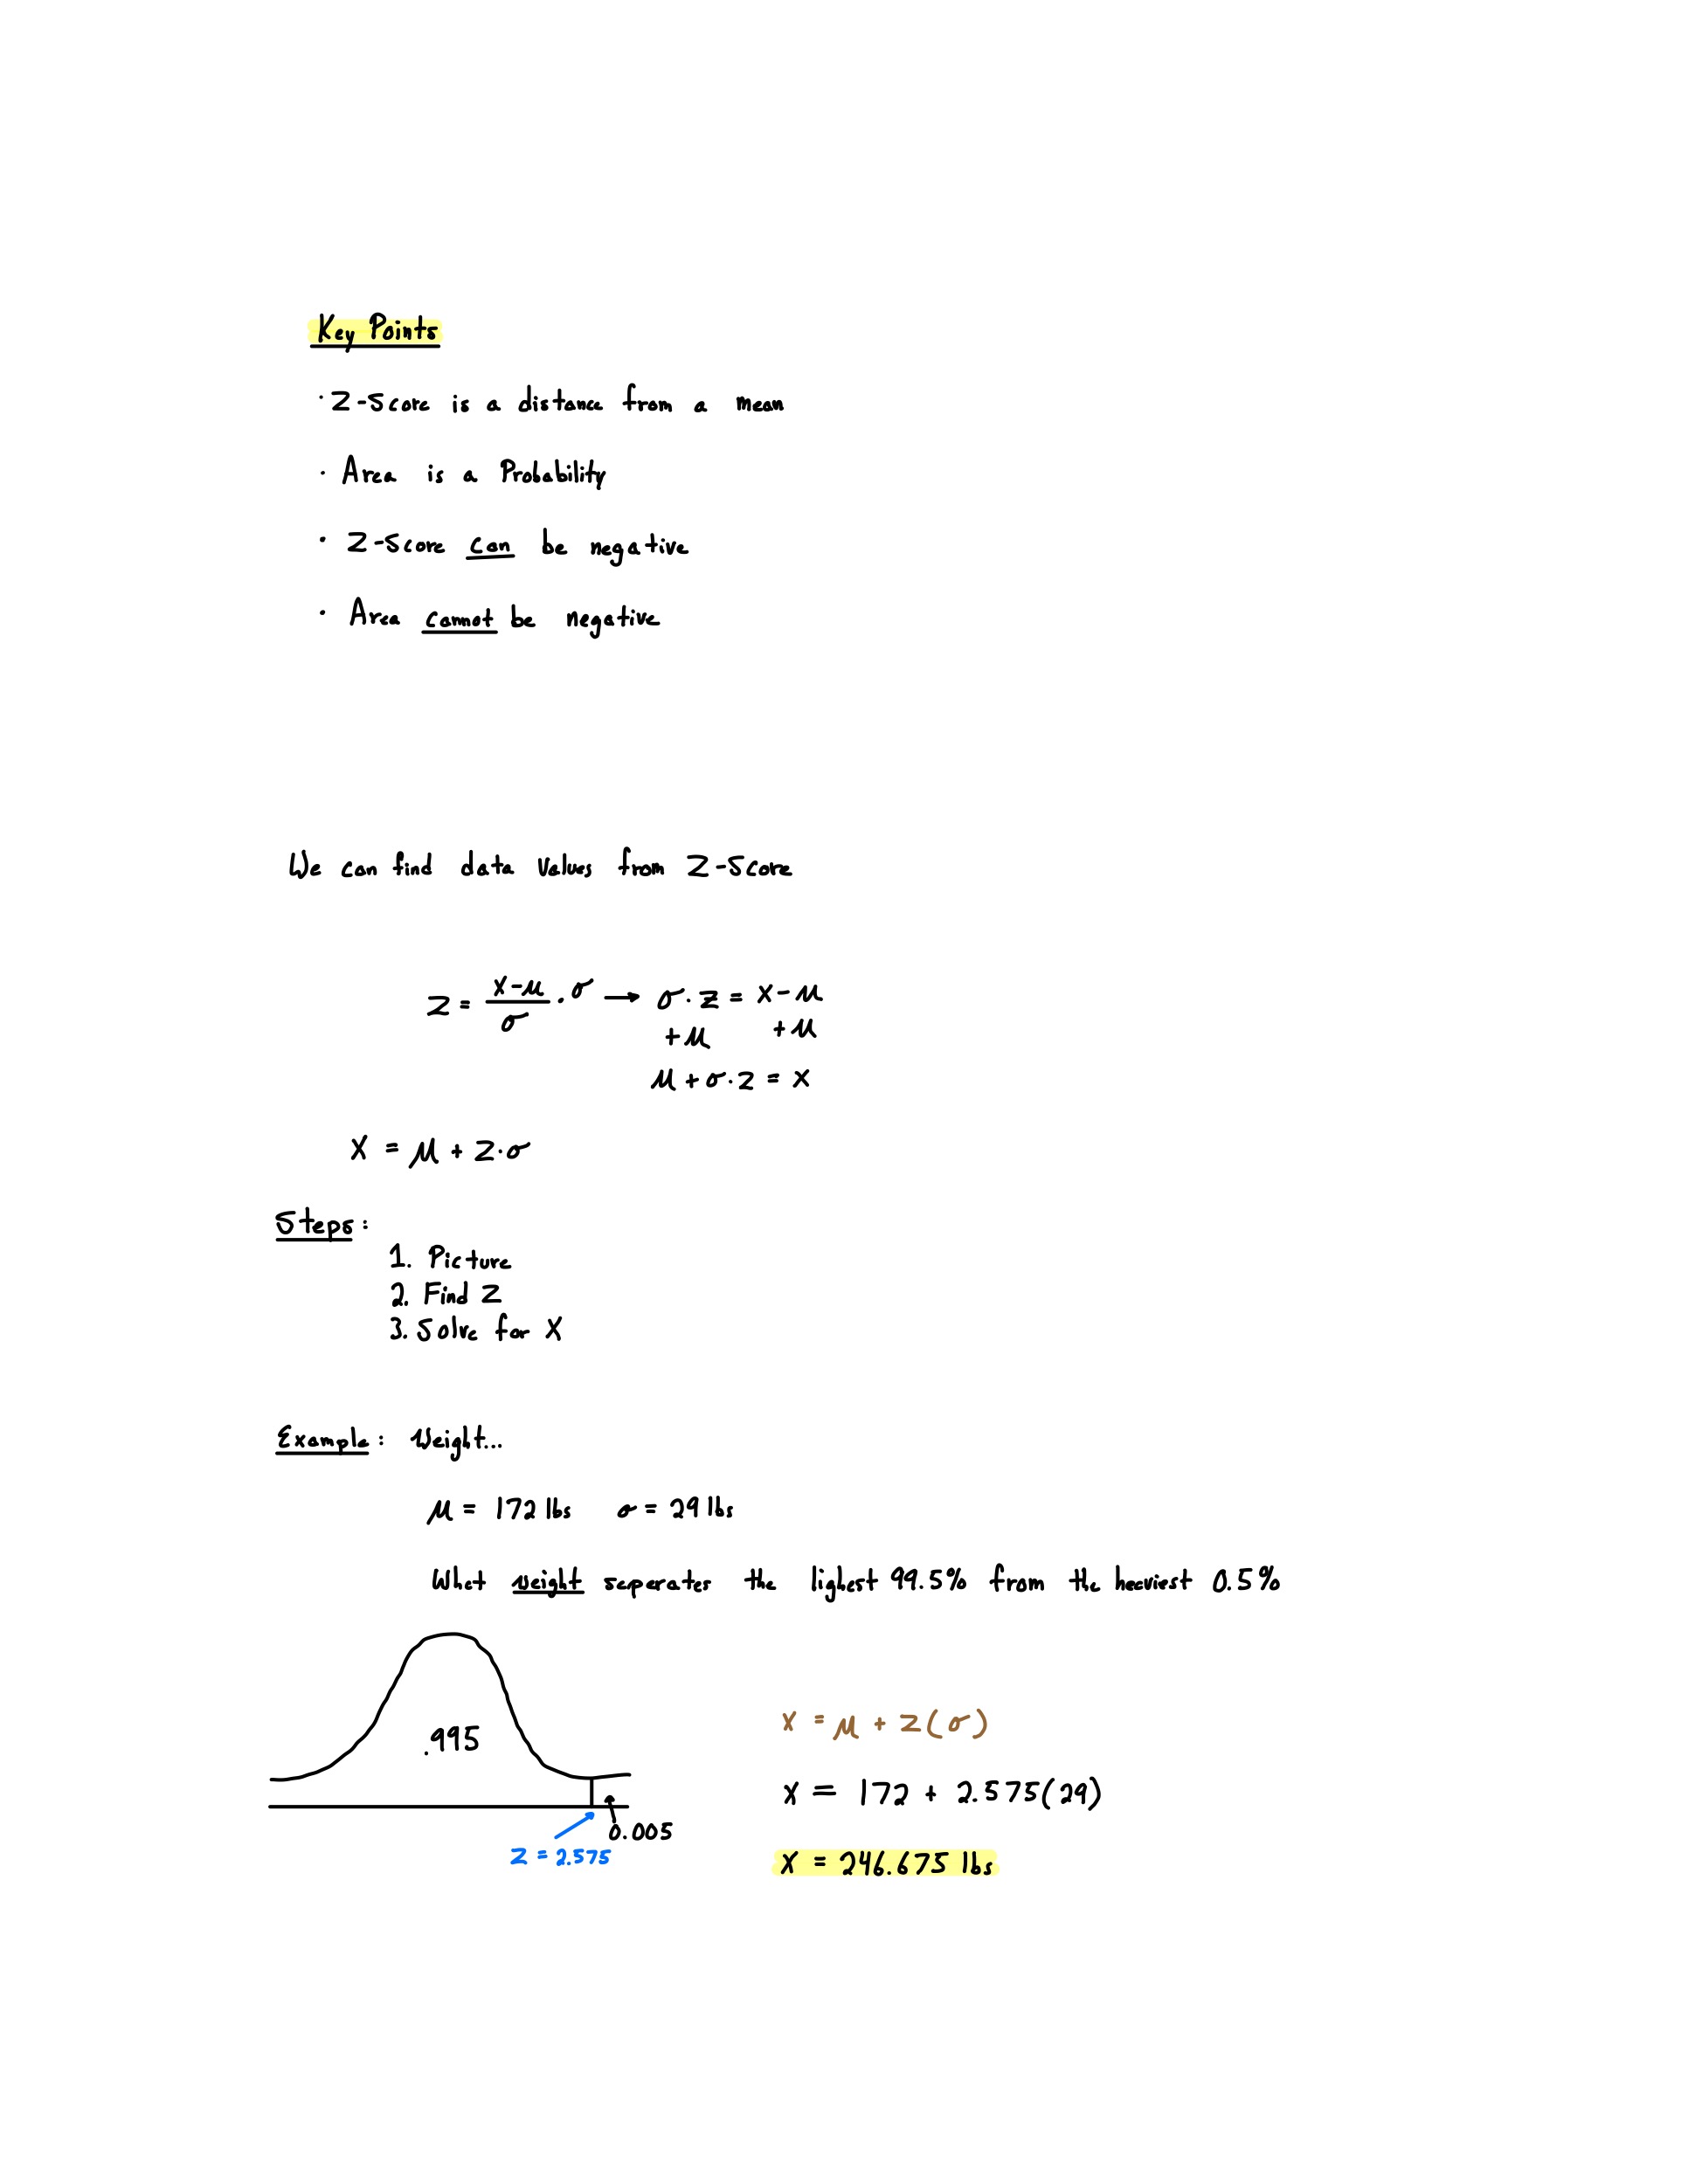 Key Points
· Z-Score is a distance from a mean
· Area is a Probability
· Z-Score can be negative
· Area cannot be negative
We can find data values from Z-Score
Z = (x-μ)/σ · σ → σ · z = x - μ
+μ +μ
μ + σ · z = x
X = μ + Z·σ
Steps:
1. Picture
2. Find Z
3. Solve for X
Example: Weight...
μ = 172 lbs σ = 29 lbs
What weight seperates the lighest 99.5% from the heaviest 0.5%
.995
x = μ + z(σ)
x = 172 + 2.575(29)
0.005
Z = 2.575
X = 246.675 lbs